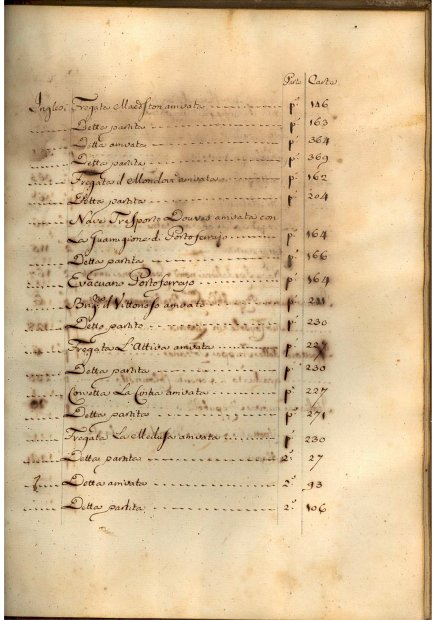 Parte Carte
Inglesi Fregata Maedston arrivata p.ª 146
Detta partita p.ª 163
Detta arrivata p.ª 364
Detta partita p.ª 369
Fregata il Mondovì arrivata p.ª 162
Detta partita p.ª 204
Nave Trasporto Douves arrivata con
La Guarnigione di Portoferrajo p.ª 164
Detta partita p.ª 166
Evacuano Portoferrajo p.ª 164
Brig.no il Vittorioso arrivato p.ª 211
Detto partito p.ª 230
Fregata L'Attiva arrivata p.ª 227
Detta partita p.ª 230
Corvetta La Cintia arrivata p.ª 227
Detta partita p.ª 271
Fregata La Medusa arrivata p.ª 230
Detta partita 2.ª 27
Detta arrivata 2.ª 93
Detta partita 2.ª 106